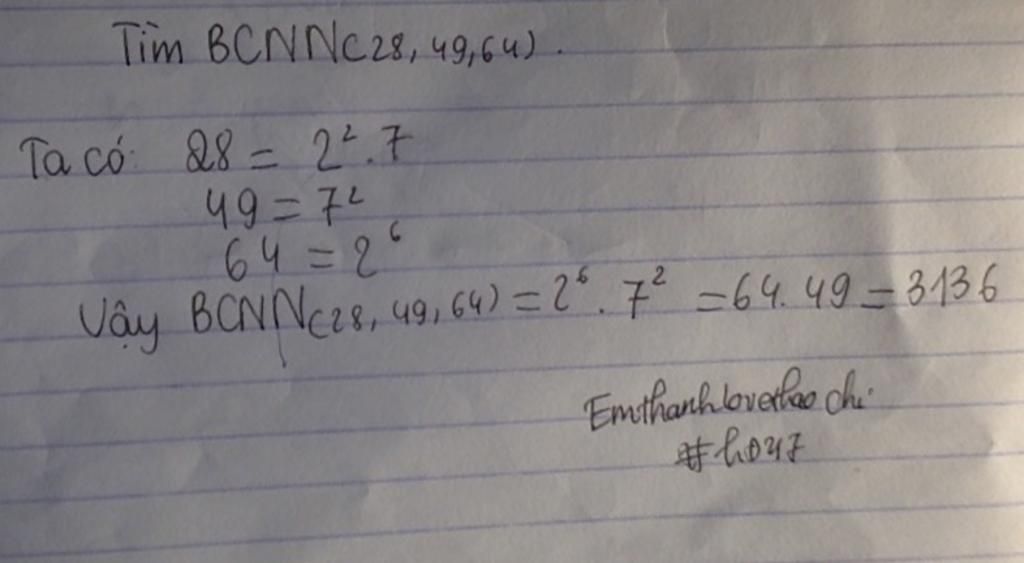 Tìm BCNN(28, 49, 64).
Ta có: 28 = 2².7
49 = 7²
64 = 2⁶
Vậy BCNN(28, 49, 64) = 2⁶ . 7² = 64. 49 = 3136
Emthanhlovethao chi.